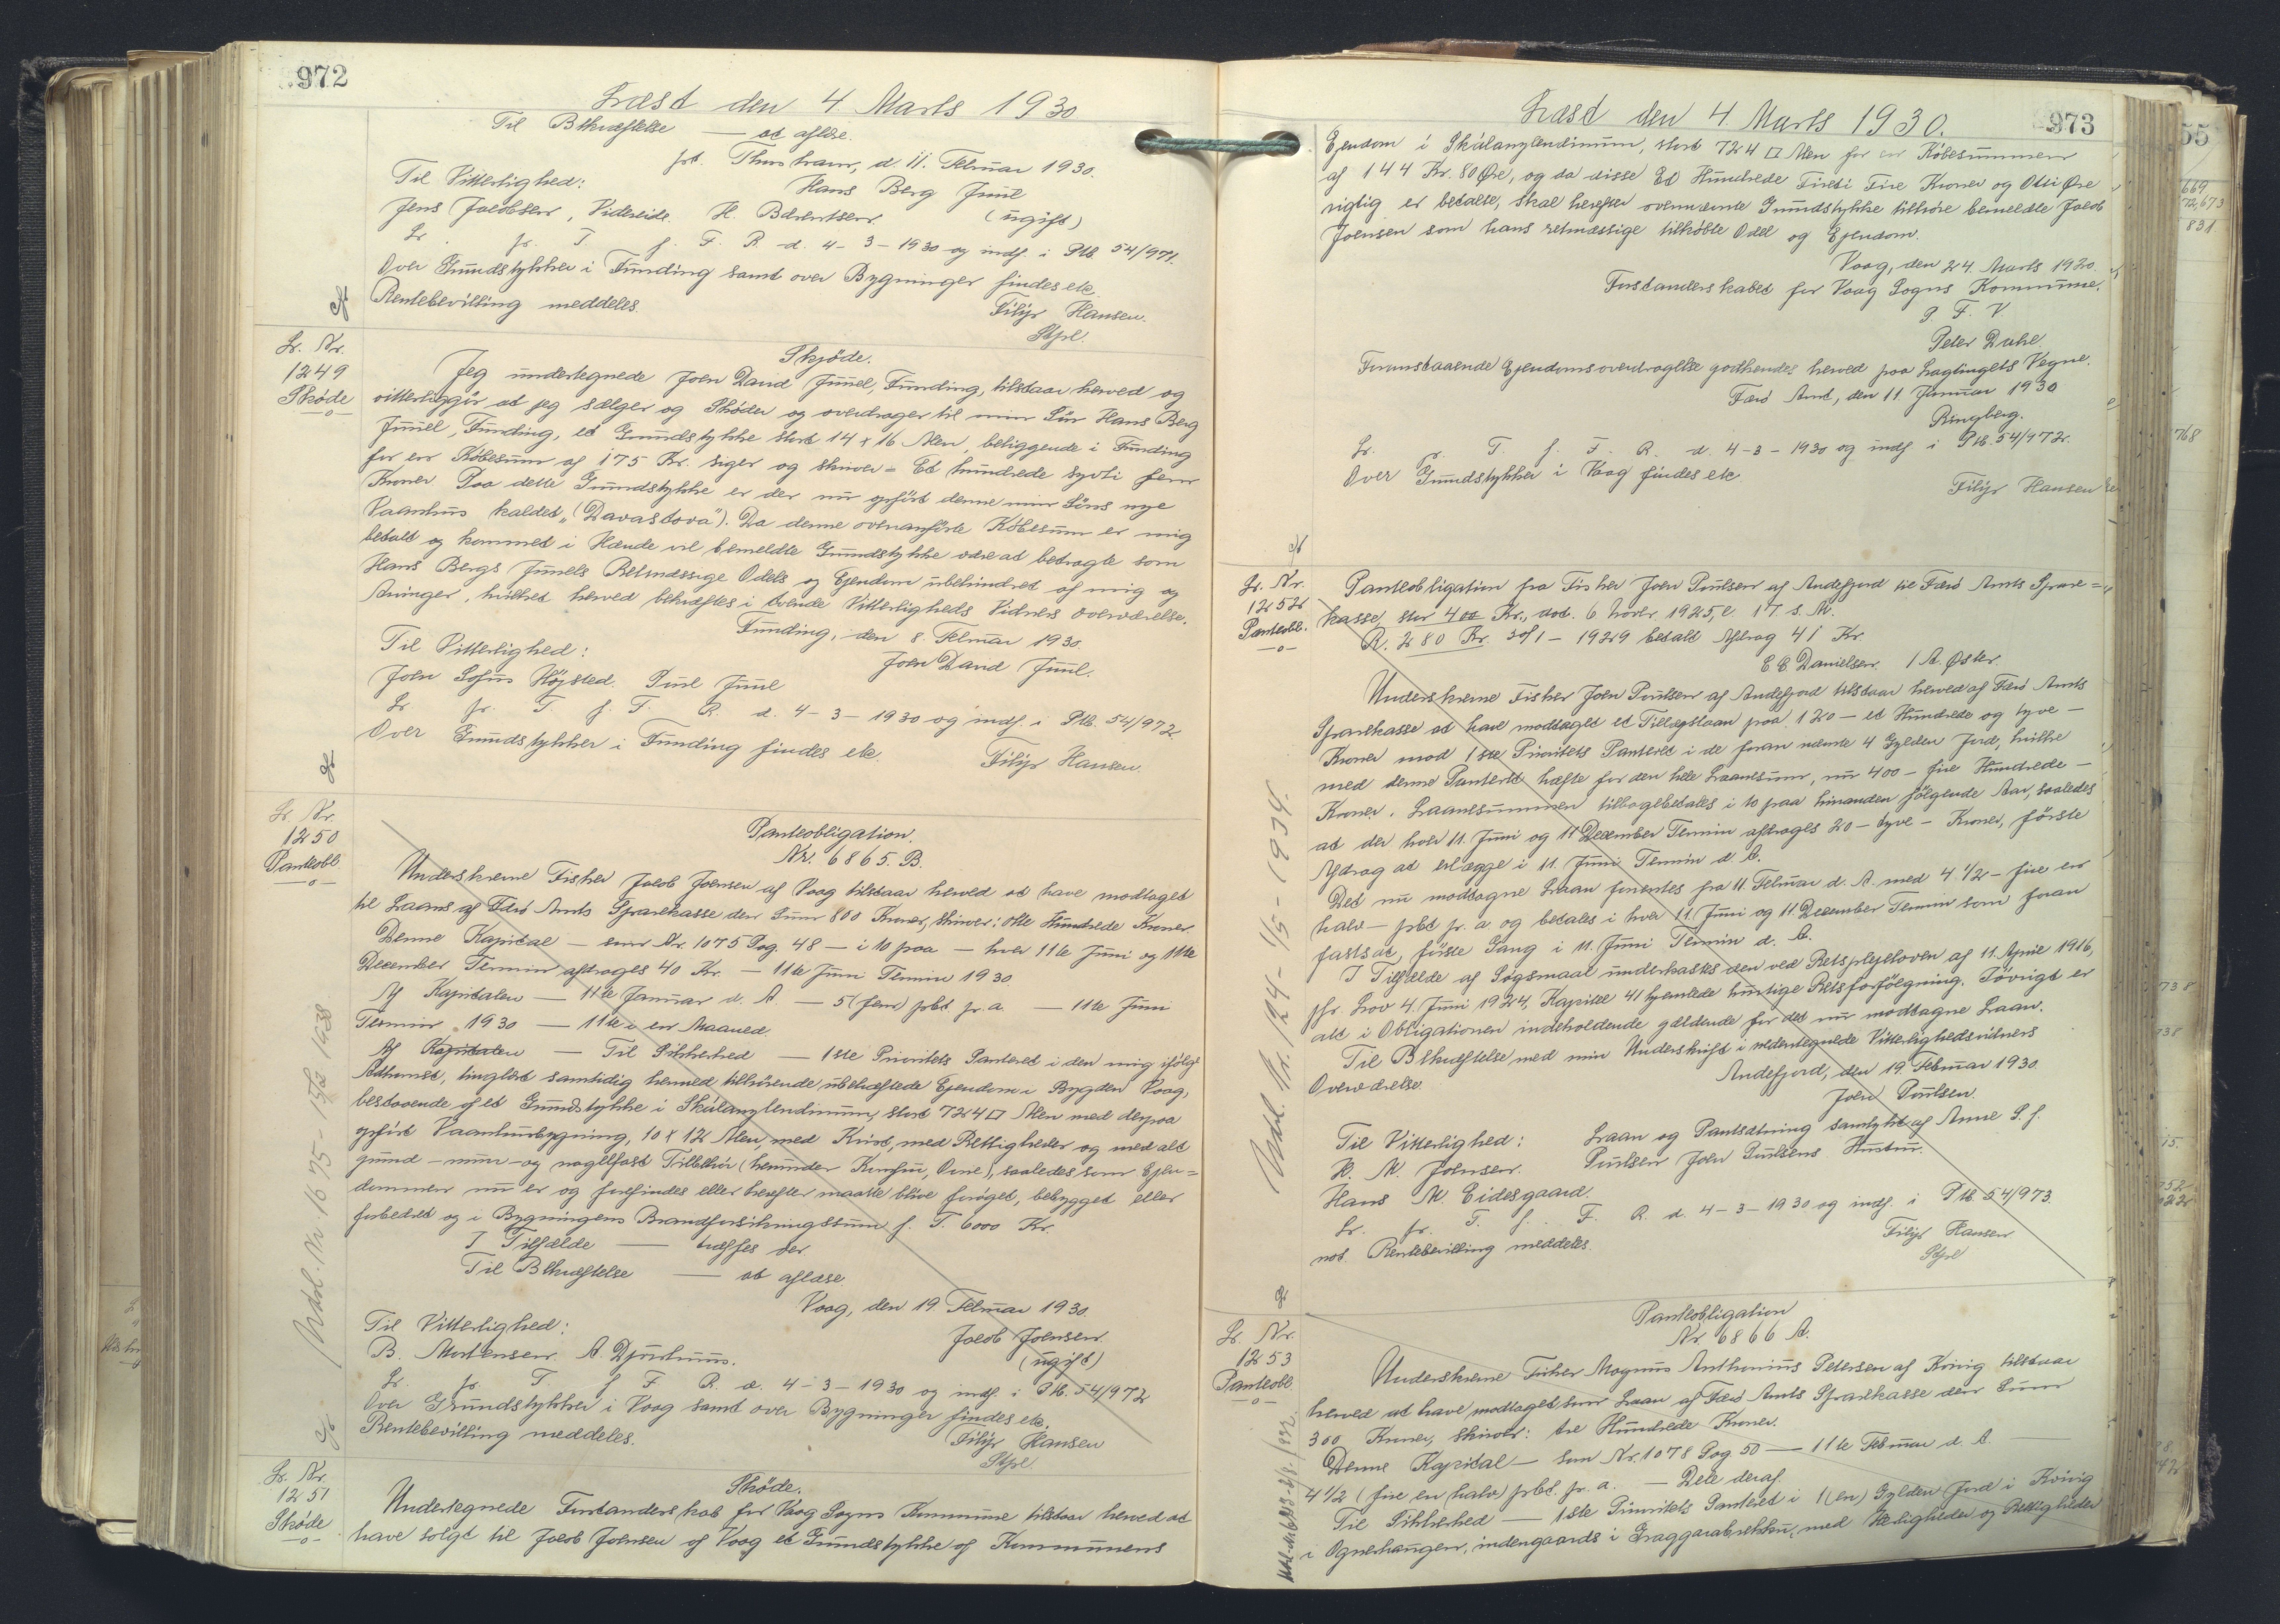 972
Læst den 4. Marts 1930
Til Bekræftelse — at aflæse.
pt. Thorshavn, d. 11. Februar 1930.
Til Vitterlighed:
Hans Berg Juul
Jens Jacobsen, Videreide. H. Bærentsen
(ugift)
Lr. fr. T. f. F. R. d. 4-3-1930 og indf. i Ptb. 54/971.
Over Grundstykker i Funding samt over Bygninger findes etc.
Rentebevilling meddeles.
Filip Hansen.
Stpl.
Lr. Nr.
1249
Skøde
Skjøde.
Jeg undertegnede Joen David Juul, Funding, tilstaar herved og
vitterliggør at jeg sælger og Skøder og overdrager til min Søn Hans Berg
Juuel, Funding, et Grundstykke stort 14 x 16 Alen, beliggende i Funding
for en Købesum af 175 Kr. siger og skriver = Et hundrede syvti fem
Kroner Paa dette Grundstykke er der nu opført denne min Søns nye
Vaanhus kaldet „(Davastova"). Da denne ovenanførte Købesum er mig
betalt og kommet i Hænde vil bemeldte Grundstykke være at betragte som
Hans Bergs Juuels Retmæssige Odels og Ejendom ubehindret af mig og
Arvinger, hvilket herved bekræftes i tvende Vitterligheds Vidners overværelse.
Funding, den 8. Februar 1930.
Til Vitterlighed:
Joen David Juul.
Joen Sofus Højsted. Poul Juul
Lr fr. T. f. F. R. d. 4-3-1930 og indf. i Ptb. 54/972.
Over Grundstykker i Funding findes etc.
Filip Hansen.
Lr. Nr.
1250
Panteobl
Panteobligation.
Nr. 6865. B.
Underskrevne Fisker Jacob Joensen af Vaag tilstaar herved at have modtaget
til Laans af Færø Amts Sparekasse den Sum 800 Kroner, skriver: otte Hundrede Kroner
Denne Kapital — som Nr. 1075 Pag. 48 — i 10 paa — hver 11te Juni og 11te
December Termin afdrages 40 Kr. — 11te Juni Termin 1930
Af Kapitalen — 11te Januar d. A. — 5 (fem) pbt. pr. a. — 11te Juni
Termin 1930 — 11te i en Maaned
Af Kapitalen — Til Sikkerhed — 1ste Prioritets Panteret i den mig ifølge
Adkomst, tinglæst samtidig hermed tilhørende ubehæftede Ejendom i Bygden Vaag,
bestaaende af et Grundstykke i Skálanylendinum, stort 724 □ Alen med derpaa
opført Vaanhusbygning, 10 x 12 Alen, med Kvist, med Rettigheder og med alt
grund-mur-og nagelfast Tilbehør (herunder Komfur, Ovne), saaledes som Ejen=
dommen nu er og forefindes eller herefter maatte blive forøget, bebygget eller
forbedret og i Bygningens Brandforsikringssum f. T. 6000 Kr.
I Tilfælde — træffes der
Til Bekræftelse — at aflæse.
Vaag, den 19. Februar 1930.
Til Vitterlighed:
Jacob Joensen.
B. Mortensen. A. Djurhuus.
(ugift)
Lr. fr. T. f F. R. d. 4-3-1930 og indf. i Ptb. 54/972
Over Grundstykker i Vaag samt over Bygninger findes etc.
Rentebevilling meddeles.
Filip Hansen
Stpl.
Udsl. Nr. 1675 - 15/12 1938
Lr. Nr.
1251
Skøde
Skøde.
Undertegnede Forstanderskab for Vaag Sogns Kommune tilstaar herved at
have solgt til Jacob Joensen af Vaag et Grundstykke af Kommunens
973
Læst den 4. Marts 1930.
Ejendom i Skálanylendinum, stort 724 □ Alen for en Købesummen
af 144 Kr. 80 Øre, og da disse Et Hundrede Fireti Fire Kroner og Otti Øre
rigtig er betalte, skal herefter ovennævnte Grundstykke tilhøre bemeldte Jacob
Joensen som hans retmæssige tilkøbte Odel og Ejendom.
Vaag, den 24. Marts 1920.
Forstanderskabet for Vaag Sogns Kommune.
P. F. V.
Peter Dahl.
Foranstaaende Ejendomsoverdragelse godkendes herved paa Lagtingets Vegne.
Færø Amt, den 11 Januar 1930
Ringberg.
Lr. fr. T. f. F. R. d. 4-3-1930 og indf. i Ptb. 54/972.
Over Grundstykker i Vaag findes etc
Filip Hansen
Lr. Nr.
1252
Panteobl.
Panteobligation fra Fisker Joen Poulsen af Andefjord til Færø Amts Spare=
kasse, stor 400 Kr., dat. 6 Novbr. 1925, l. 17 s. M.
R. 280 Kr. 30/1 - 1929 betalt Afdrag 41 Kr.
E E Danielsen. / A. Øster.
Underskrevne Fisker Joen Poulsen af Andefjord tilstaar herved af Færø Amts
Sparekasse at have modtaget et Tillægslaan paa 120 — et Hundrede og tyve —
Kroner mod 1ste Prioritets Panteret i de foran nævnte 4 Gylden Jord, hvilke
med denne Panteret hæfte for den hele Laanesum, nu 400 — fire Hundrede —
Kroner. Laanesummen tilbagebetales i 10 paa hinanden følgende Aar, saaledes
at der hver 11. Juni og 11 December Termin afdrages 20 — tyve — Kroner, første
Afdrag at erlægge i 11. Juni Termin d. A.
Det nu modtagne Laan forrentes fra 11. Februar d. A. med 4 1/2 — fire en
halv — pbt pr. a. og betales i hver 11. Juni og 11. December Termin som foran
fastsat, første Gang i 11. Juni Termin d. A.
I Tilfælde af Søgsmaal underkastes den ved Retsplejeloven af 11. April 1916,
jfr. Lov 4. Juni 1924, Kapitel 41 hjemlede hurtige Retsforfølgning. Iøvrigt er
alt i Obligationen indeholdende gældende for det nu modtagne Laan.
Til Bekræftelse med min Underskrift i undertegnede Vitterlighedsvidners
Overværelse.
Andefjord, den 19. Februar 1930.
Joen Poulsen.
Til Vitterlighed:
Laan og Pantsætning samtykt af Anne S. f.
K. M. Joensen.
Poulsen Joen Poulsens Hustru.
Hans M Eidesgaard.
Lr. fr. T. f. F. R. d. 4-3-1930 og indf. i Ptb. 54/973.
not. Rentebevilling meddeles.
Filip Hansen
Stpl
Udsl. Nr. 124 - 1/5 - 1934.
Lr. Nr.
1253
Panteobl
Panteobligation
Nr 6866 A.
Underskrevne Fisker Magnus Anthonius Petersen af Kvivig tilstaar
herved at have modtaget som Laan af Færø Amts Sparekasse den Sum
300 Kroner, skriver: tre Hundrede Kroner.
Denne Kapital — som Nr. 1078 Pag. 50 — 11te Februar d. A.
4 1/2 (fire en halv) pbt. pr. a. — Dele deraf.
Til Sikkerhed — 1ste Prioritets Panteret i 1 (en) Gylden Jord i Kvivig
i Ognerhaugen, indengaards i Graggarabrekku, med Herligheder og Rettigheder
55
669
72,673
831
768
738
738
15.